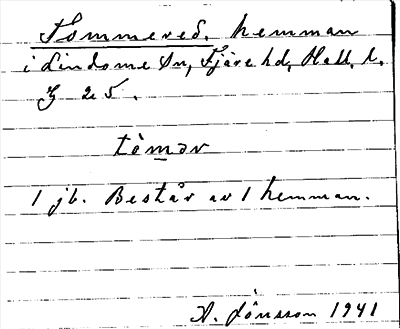 Tommered, hemman
i Lindome Sn, Fjäre hd, Hall. l.
tò̀mər
1 jb. Består av 1 hemman.
A. Jönsson 1941